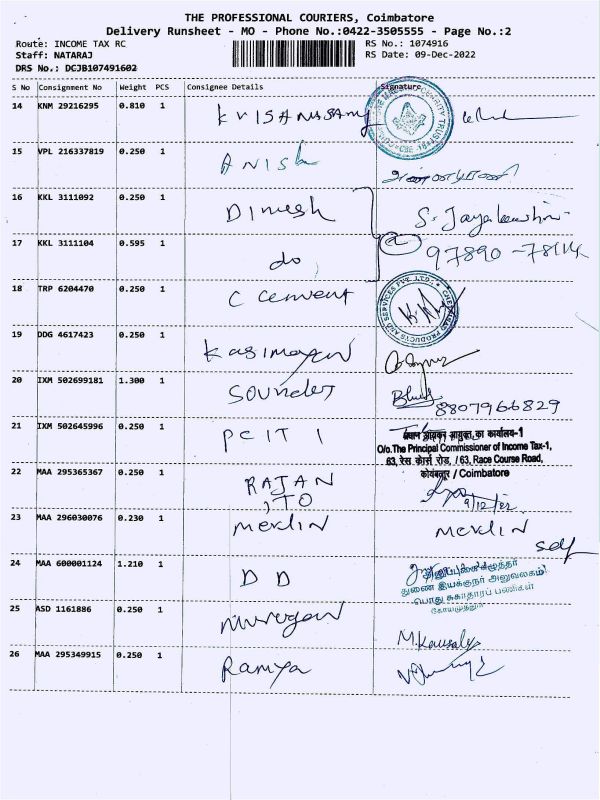 THE PROFESSIONAL COURIERS, Coimbatore
Delivery Runsheet - MO - Phone No.:0422-3505555 - Page No.:2
Route: INCOME TAX RC RS No.: 1074916
Staff: NATARAJ RS Date: 09-Dec-2022
DRS No.: DCJB107491602
S No Consignment No Weight PCS Consignee Details Signature
14 KNM 29216295 0.810 1 KRISHNASAMY
15 VPL 216337819 0.250 1 ANISh
16 KKL 3111092 0.250 1 Dinesh
17 KKL 3111104 0.595 1 do 97890-78114
18 TRP 6204470 0.250 1 C cement
19 DDG 4617423 0.250 1
20 IXM 502699181 1.300 1 Sounder 8807966829
21 IXM 502645996 0.250 1 PCIT 1
प्रधान आयकर आयुक्त का कार्यालय-1
O/o.The Principal Commissioner of Income Tax-1,
63, रेस कोर्स रोड, / 63, Race Course Road,
कोयंबत्तूर / Coimbatore
22 MAA 295365367 0.250 1 RAJAN
ITO 9/12/22
23 MAA 296030076 0.230 1 merlin merlin
self
24 MAA 600001124 1.210 1 D D
துணை இயக்குநர் அலுவலகம்
பொது சுகாதாரப் பணிகள்
கோயமுத்தூர்
25 ASD 1161886 0.250 1 Murugan M.Kousalya
26 MAA 295349915 0.250 1 Ramya